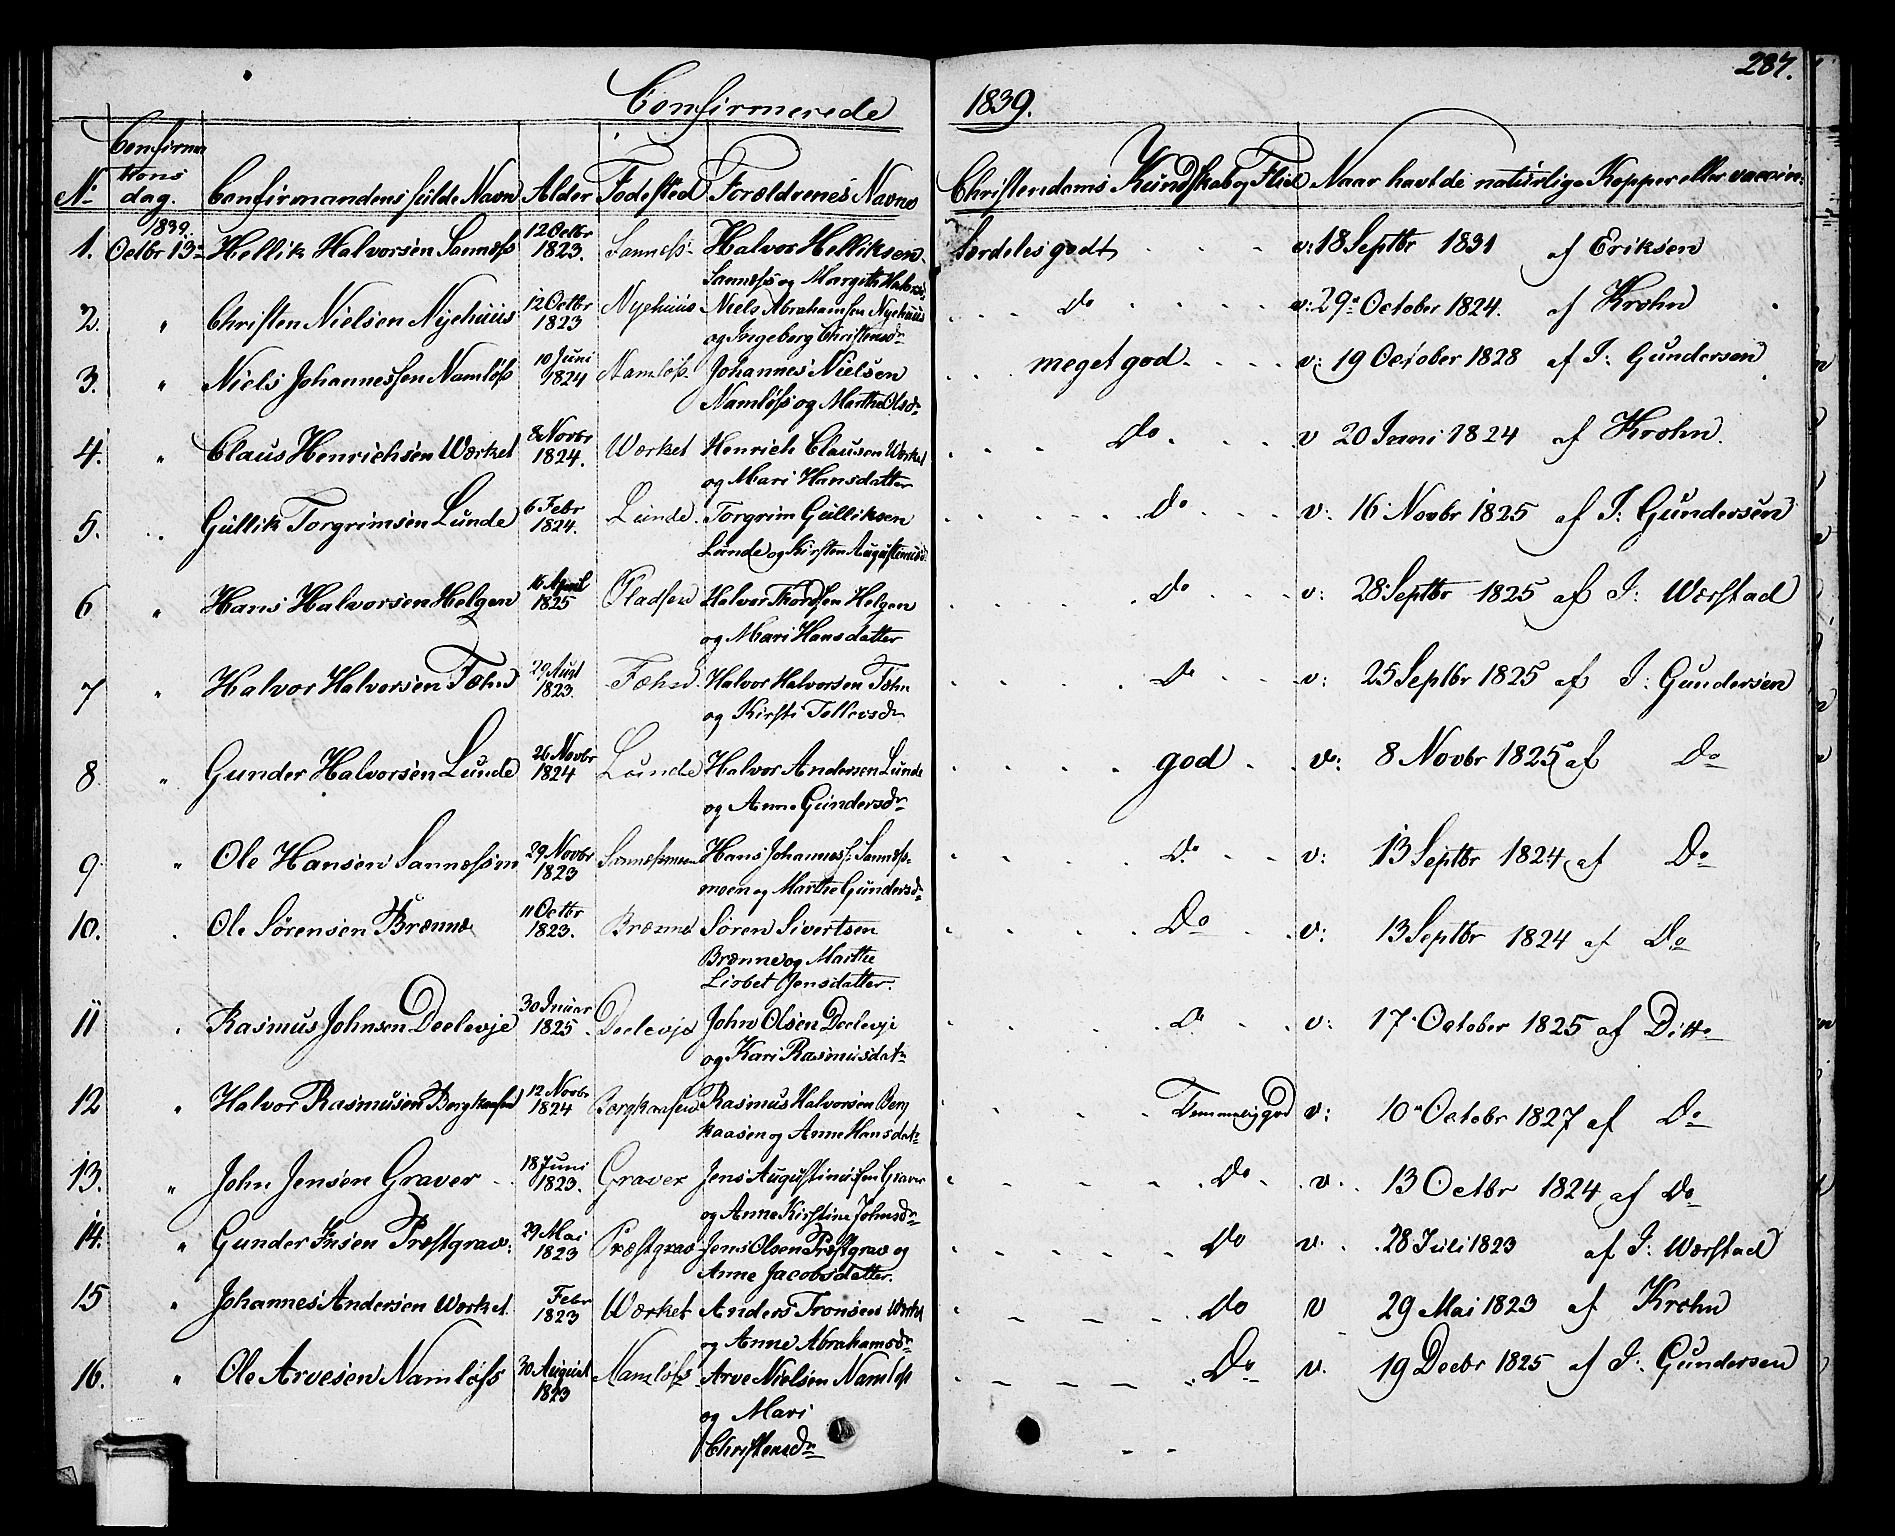 287.
Confirmerede 1839.
No Confirmations dag. Confirmandens fulde Navn Alder Fødested Forældrenes Navne Christendoms Kundskab og Flid Naar havt de naturlige Kopper eller vaccin:
1. 1839. Octbr 13de Hellik Halvorsen Sannæss 12 Octbr 1823. Sannæss Halvor Helliksen særdeles godt v: 18 Septbr 1831 af Eriksen
Sannæss og Margith
2. " Christen Nielsen Nyehuus 12 Octbr 1823 Nyehuus Niels Abrahamsen Nyehuus do v: 29de October 1824. af Krohn
og Ingeborg Christensdr
3. " Niels Johannessen Namløss 10 Juni 1824 Namløss Johannes Nielsen meget god v: 19 October 1828 af I: Gundersen
Namløss og Marthe Olsdr
4. " Claus Henrichsen Wærket 8 Novbr 1824. Wærket Henrich Clausen Wærket do v 20 Juni 1824 af Krohn.
og Mari Hansdatter
5. " Gullik Torgrimsen Lunde 6 Febr 1824. Lunde Torgrim Gulliksen do v: 16 Novbr 1825 af I: Gundersen
Lunde og Kirsten Augustinusd
6 " Hans Halvorsen Helgen 16 April 1825 Pladsen Halvor Thordsen Helgen do v: 28 Septbr 1825 af I: Wærstad
og Mari Hansdatter
7 " Halvor Halvorsen Fæhn 29 Augt 1823. Fæhn Halvor Halvorsen Fæhn do v: 25 Septbr 1825 af I: Gundersen
og Kirsti Tollevsdr
8. " Gunder Halvorsen Lunde 26 Novbr 1824 Lunde Halvor Andersen Lunde god v: 8 Novbr 1825 af Do
og Anne Gundersdr
9. " Ole Hansen Sannæssm 29 Novbr 1823 Sannæssmoen Hans Johanness: Sannæss- do v: 13 Septbr 1824 af Do
moen og Marthe Gundersdr
10. " Ole Sørensen Brænne 11 Octbr 1823. Brænne Søren Sivertsen Do v: 13 Septbr 1824 af Do
Brænne og Marthe
Lisbet Jensdatter.
11 " Rasmus Johnsen Deelevje 30 Januar 1825. Deelevje John Olsen Deelevje do v: 17 October 1825 af Ditto
og Kari Rasmusdatr
12 " Halvor Rasmusen Bergkaasen 12 Novbr 1824 Bergkaasen Rasmus Halvorsen Berg Temmelig god v: 10de Octobr 1827 af Do
kaasen og Anne Hansdatr
13. " John Jensen Graver 18 Juni 1823. Graver Jens Augustinusen Graver do v. 13 Octbr 1824 af do
og Anne Kirstine Johnsdr
14. " Gunder Jensen Præstgrav: 29 Mai 1823 Præstgrav Jens Olsen Præstgrav og do v. 28 Juli 1823 af I: Wærstad
Anne Jacobsdatter.
15 " Johannes Andersen Wærket. Febr 1823 Wærket Anders Tronsen Wærket do v 29 Mai 1823 af Krohn
og Anne Abrahamsdr
16. " Ole Arvesen Namløss 30 August 1823 Namløss Arve Nielsen Namløss Do v. 19 Decbr 1825 af I: Gundersen
og Mari
Christensdr